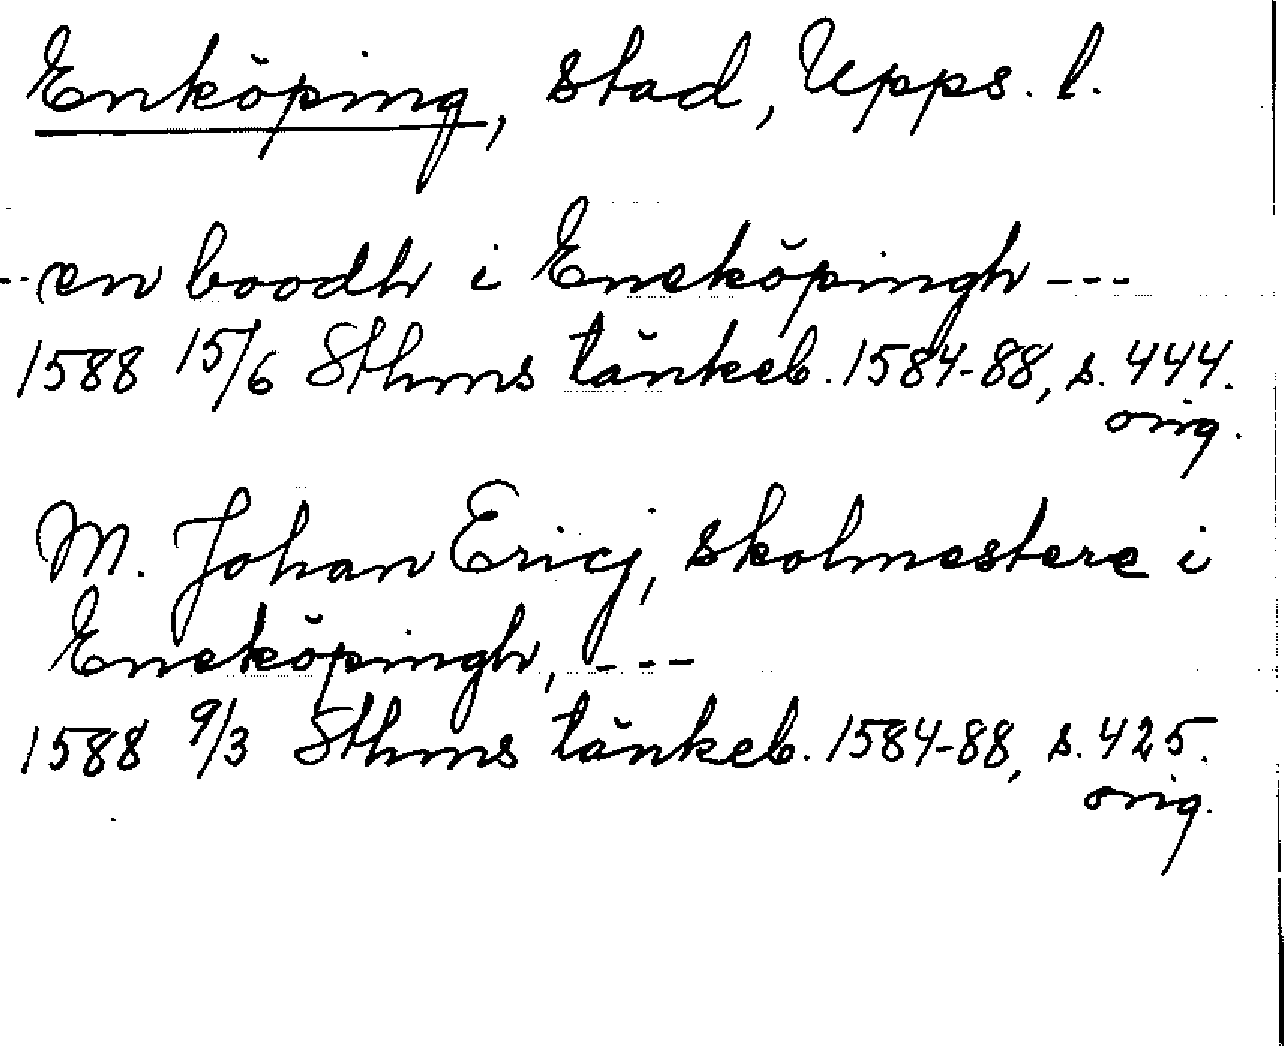 Enköping, stad, Upps. l.
--en boodh i Eneköpingh ---
1588 15/6 Sthms tänkeb. 1584-88, s. 444.
orig.
M. Johan Ericj, skolmestere i
Eneköpingh, ---
1588 9/3 Sthms tänkeb. 1584-88, s. 425.
orig.